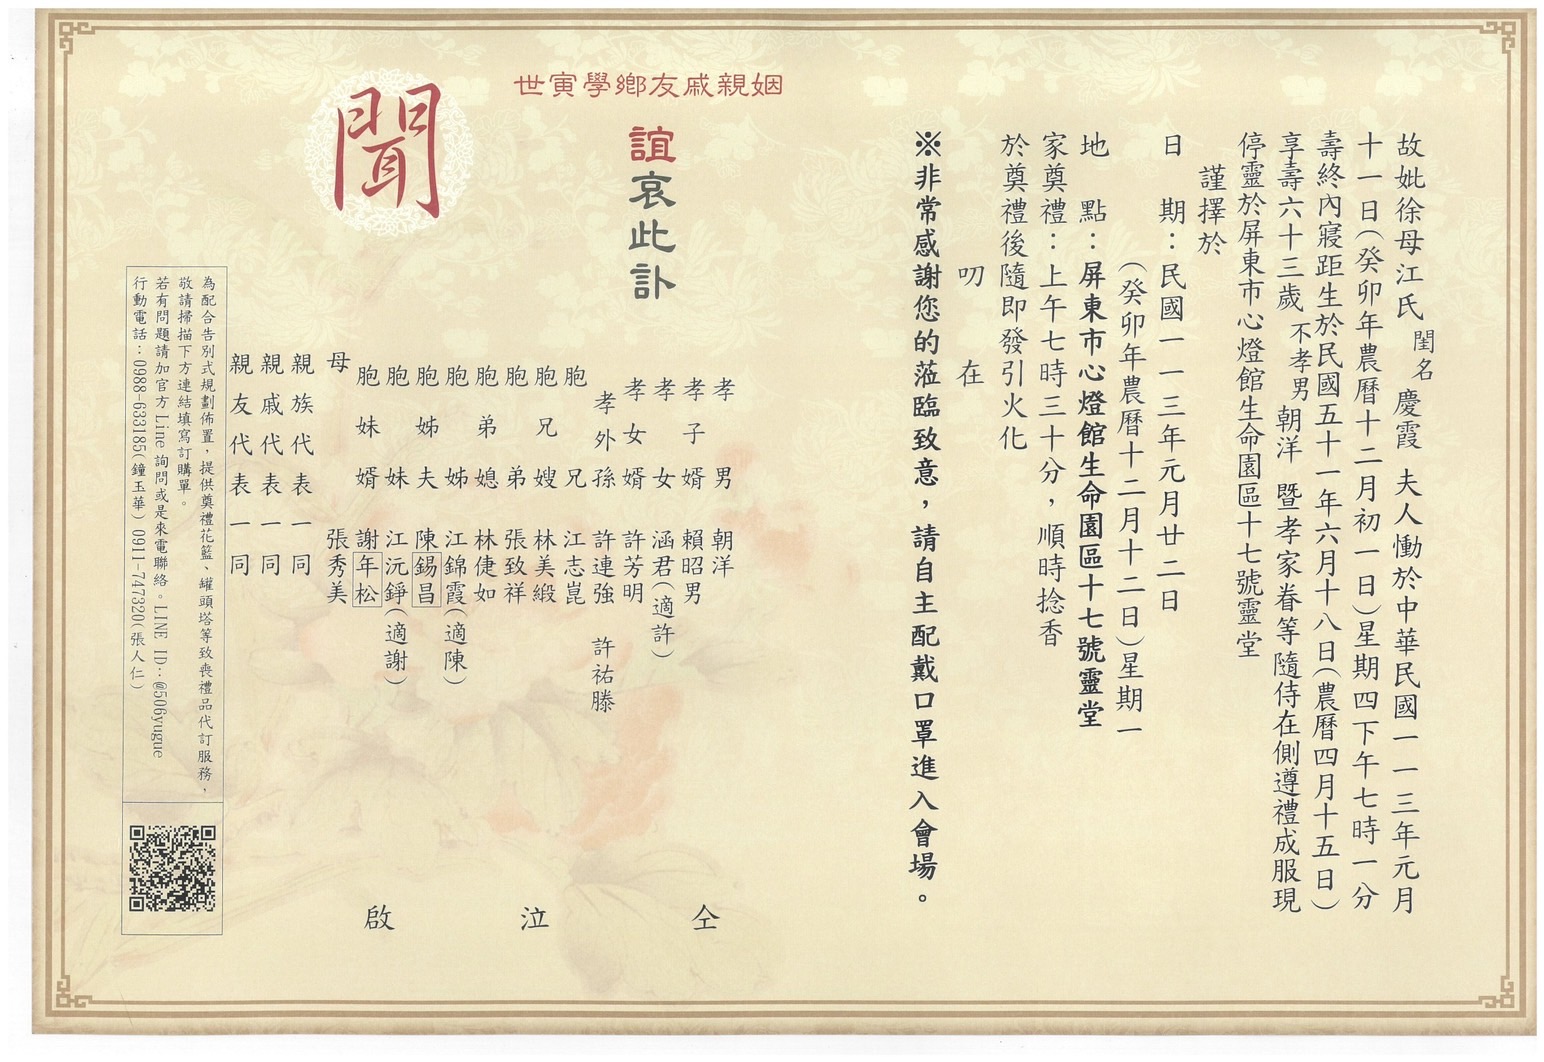 故妣徐母江氏閨名慶霞 夫人慟於中華民國一一三年元月
十一日(癸卯年農曆十二月初一日)星期四下午七時一分
壽終內寢距生於民國五十一年六月十八日(農曆四月十五日)
享壽六十三歲不孝男朝洋 暨孝家眷等隨侍在側遵禮成服現
停靈於屏東市心燈館生命園區十七號靈堂
謹擇於
日 期：民國一一三年元月廿二日
(癸卯年農曆十二月十二日)星期一
地 點：屏東市心燈館生命園區十七號靈堂
家奠禮：上午七時三十分，順時捻香
於奠禮後隨即發引火化
叨 在
※非常感謝您的蒞臨致意，請自主配戴口罩進入會場。
世寅學鄉友戚親姻
誼哀此訃
聞
孝男 朝洋
孝子婿 賴昭男
孝女 涵君(適許)
孝女婿 許芳明
孝外孫 許連強 許祐滕
胞兄 江志崑
胞兄嫂 林美緞
胞弟 張致祥
胞弟媳 林倢如
胞姊 江錦霞(適陳)
胞姊夫 陳錫昌
胞妹 江沅錚(適謝)
胞妹婿 謝年松
母 張秀美
親族代表一同
親戚代表一同
親友代表一同
仝 泣 啟
為配合告別式規劃佈置，提供奠禮花籃、罐頭塔等致喪禮品代訂服務，
敬請掃描下方連結填寫訂購單。
若有問題請加官方Line詢問或是來電聯絡。LINE ID:@506yugue
行動電話：0988-633185(鐘玉華) 0911-747320(張人仁)